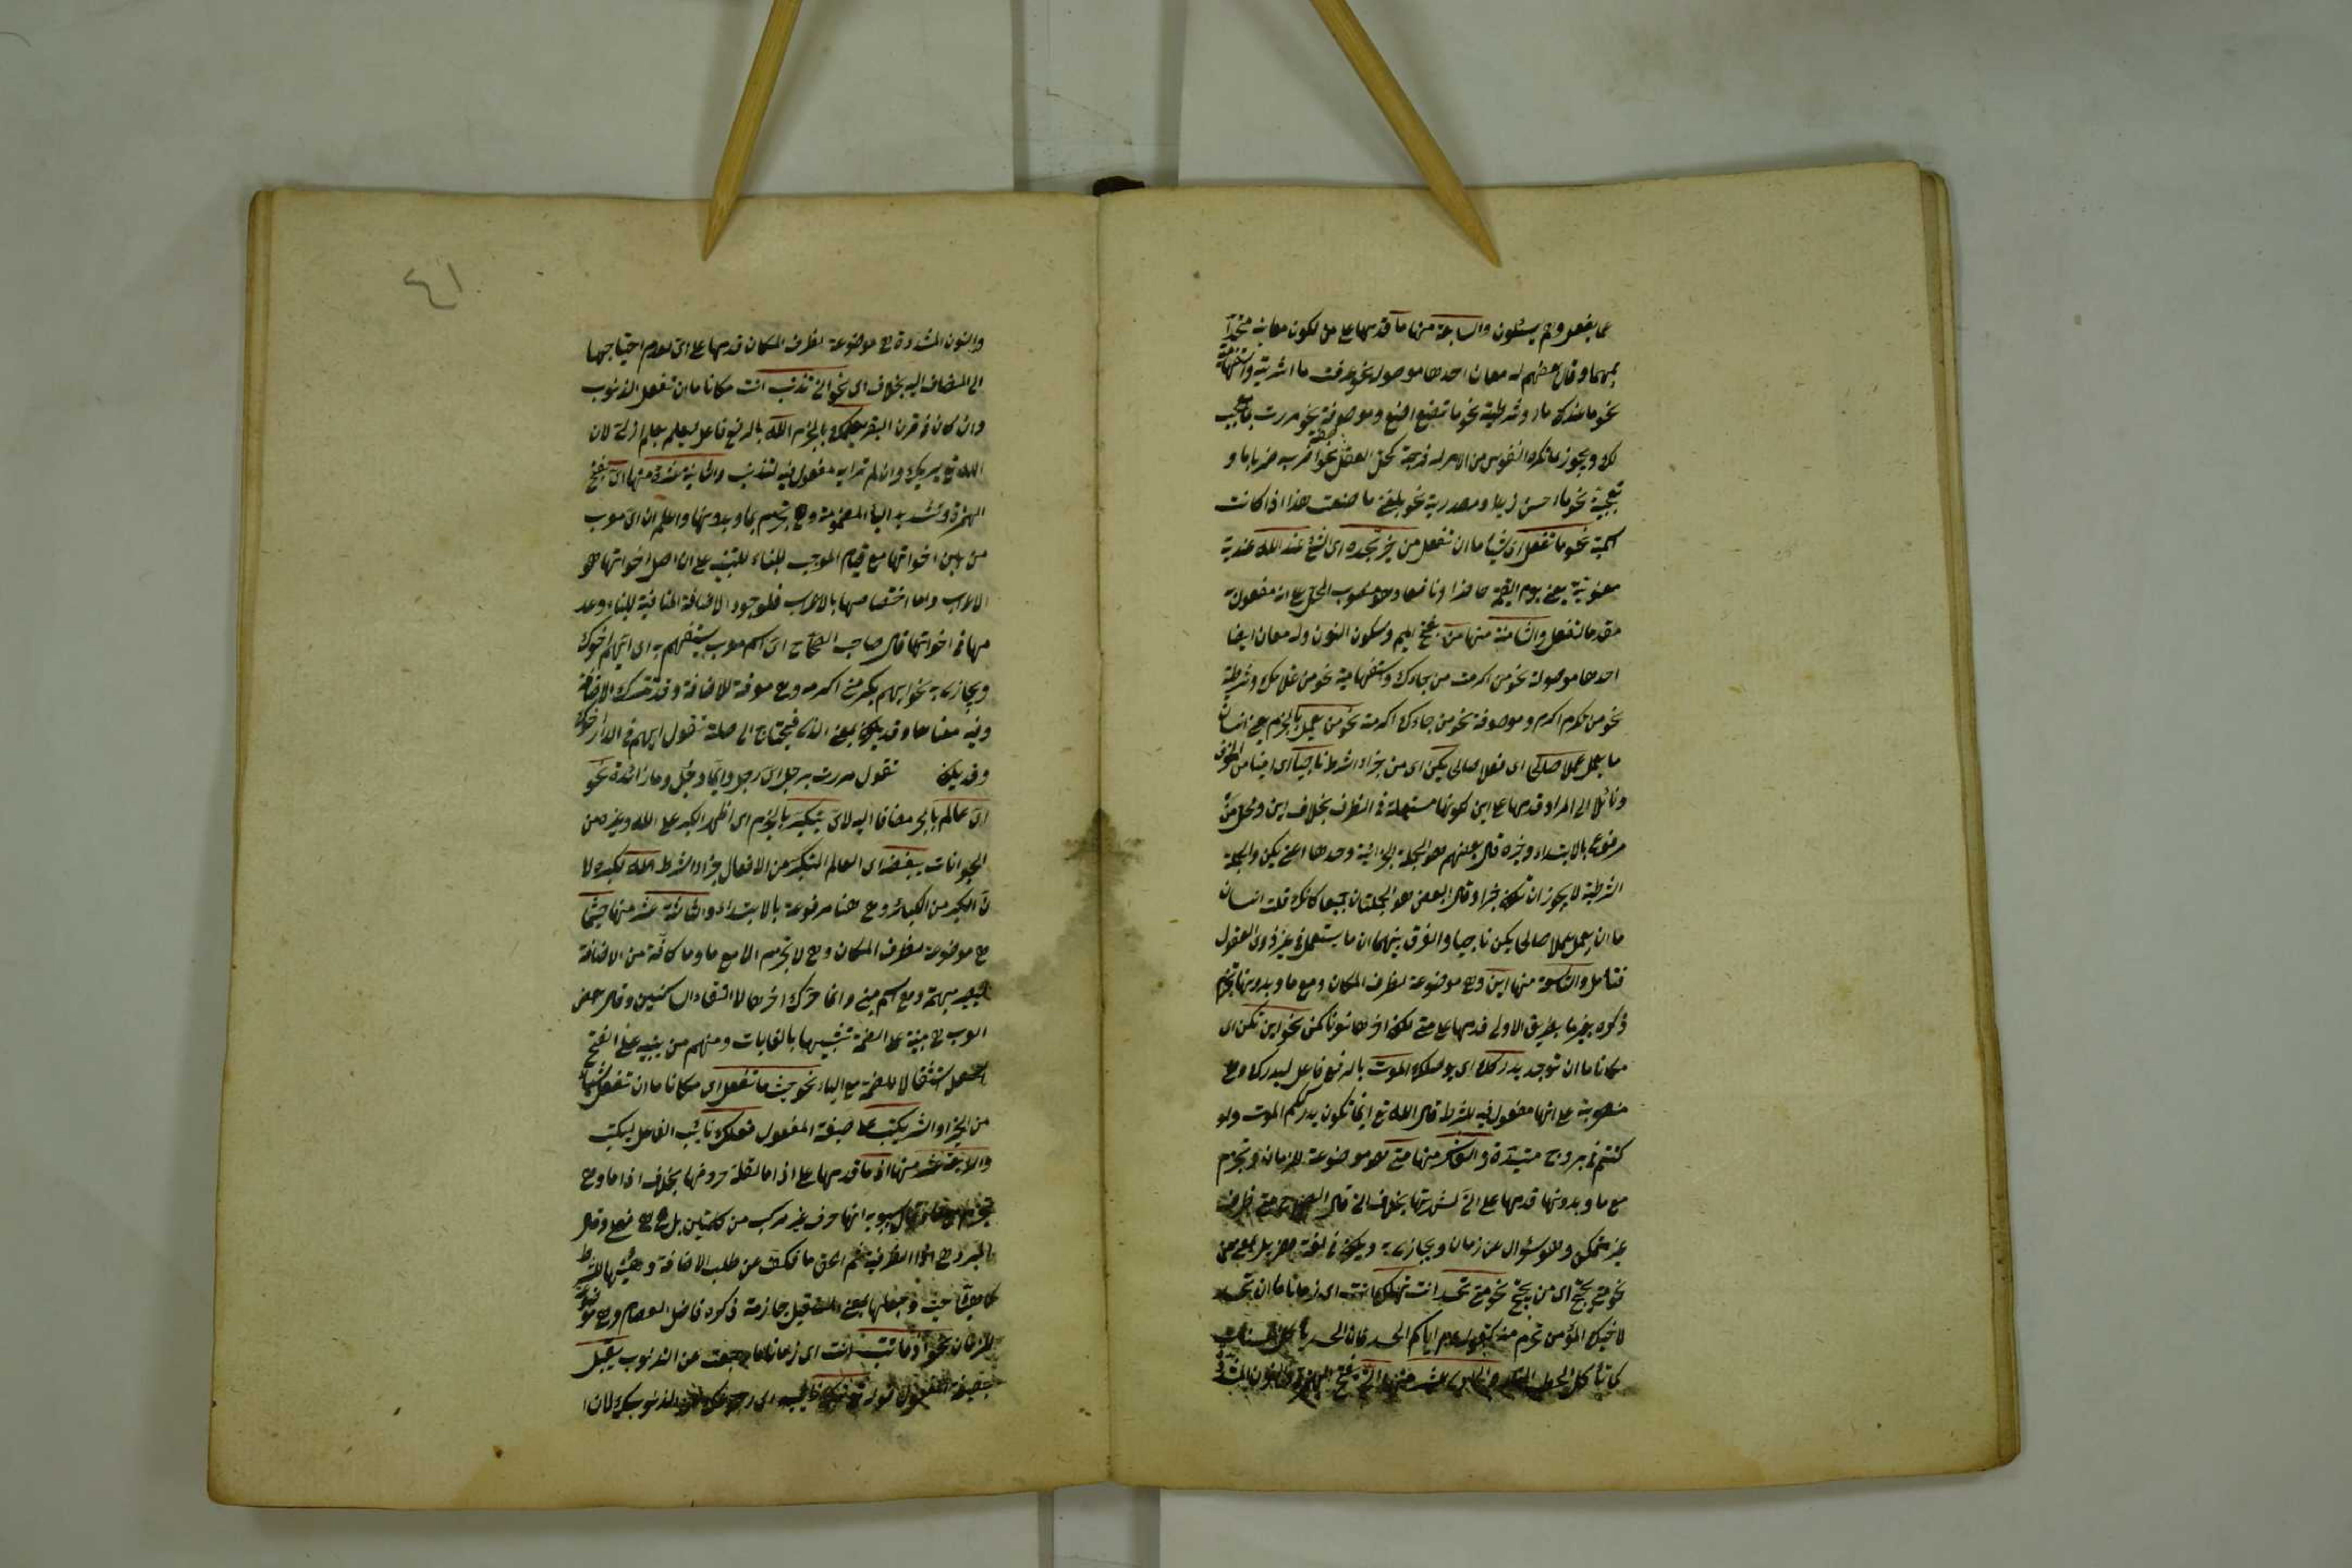 عما يفعل وهم يسئلون والسابعة منها ما قدمها على من لكون معانيه متحدا
بمهما وقال بعضهم له معان احدها موصولة نحو عرفت ما اشتريته واستفهامية
نحو ما عندك وشرطية نحو ما تصنع اصنع وموصوفة نحو مررت بما معجب
لك ويجوز ما تكره النفوس من الامر له فرجة كحل العقال نحو اضربه ضربا ما و
تعجبية نحو ما احسن زيدا ومصدرية نحو بلغني ما صنعت هذا اذا كانت
اسمية نحو ما تفعل اى شيئا ما ان تفعل من خير تجده اى الشئ عند الله عندية
معنوية يعنى يوم القيمة وهو منصوب المحل على انه مفعول
مقدما لتفعل والثامنة منها من بفتح الميم وسكون النون وله معان ايضا
احدها موصولة نحو من اكرمت من جاءك واستفهامية نحو من غلامك وشرطية
نحو من تكرم اكرم وموصوفة نحو من جاءك اكرمته نحو من يعمل بالجزم يعنى انسان
ما يعمل عملا صالحا اى فعلا صالحا يكن اى من جزاء الشرط ناجيا اى امينا من الخوف
ونائلا الى المراد قدمها على اين لكونها مستعملة فى الظرف بخلاف اين ومحل من
مرفوع بالابتداء وخبره قال بعضهم هو الجملة الجزائية وحدها اعنى يكن والجملة
الشرطية لا يجوز ان تكون خبرا وقال البعض هو الجملتان جميعا كانك قلت انسان
ما ان يعمل عملا صالحا يكن ناجيا والفرق بينهما ان ما يستعمل فى غير ذوى العقول
فتأمل والتاسعة منها اين وهى موضوعة لظرف المكان ومع ما وبدونها تجزم
ذكره بغير ما بطريق الاولى قدمها على متى لكون اخرها نونا كمن نحو اين تكن اى
مكانا ما ان توجد يدركك اى يوصلك الموت بالرفع فاعل ليدركك وهى
منصوبة على انها مفعول فيه للشرط قال الله تع اينما تكونوا يدرككم الموت ولو
كنتم فى بروج مشيدة والعاشر منها متى هو موضوعة للزمان وتجزم
مع ما وبدونها قدمها على انى لشهرتها بخلاف انى قال متى ظرف
غير متمكن وهو سؤال عن زمان ويجازى به ويكون فى لغة هذيل بمعنى من
نحو متى تحسد انت تهلك انت اى زمانا ما ان تحسد
لاخيك المؤمن تحرم منه كقوله عم اياكم الحسد فان الحسد يأكل الحسنات
كما تأكل النار الحطب والحادى عشر منها انى بفتح الهمزة والنون المشددة
٤١
والنون المشددة هى موضوعة لظرف المكان قدمها على اى لعدم احتياجها
الى المضاف اليه بخلاف اى نحو انى تذنب انت مكانا ما ان تفعل الذنوب
وان كان فى قرن البقر يعلمك بالجزم الله بالرفع فاعل ليعلم بعلم ازلى لان
الله تع يريك وان لم تراه مفعول فيه لتذنب والثانية عشرة منها اى بفتح
الهمزة وتشديد الياء المضمومة وهى تجزم بما وبدونها واعلم ان اى معرب
من بين اخواتها مع قيام الموجب للبناء للتنبيه على ان اصل اخواتها هو
الاعراب واما اختصاصها بالاعراب فلوجود الاضافة المنافية للبناء وعد
مها فى اخواتها قال صاحب الصحاح اى اسم معرب يستفهم به اى ايهم اخوك
ويجازى به نحو ايهم يكرمنى اكرمه وهى معرفة للاضافة وقد تترك الاضافة
وفيه معناها وقد يكون بمعنى الذى فيحتاج الى صلة تقول ايهم فى الدار اخوك
وقد يكون تقول مررت برجل اى رجل وايما رجل وما زائدة نحو
اى عالم بالجر مضافا اليه لاى يتكبر بالجزم اى اظهر الكبر على الله وغيره من
الحيوانات يبغضه اى العالم المتكبر من الافعال جزاء الشرط الله لكبره لا
ن الكبر من الكبائر وهى هنا مرفوعة بالابتداء والثالثة عشر منها حيثما
هى موضوعة لظرف المكان وهى لا تجزم الا مع ما وما كافة من الاضافة
مبهمة وهى اسم مبنى وانما حرك اخرها لالتقاء الساكنين وقال بعض
العرب هى مبنية على الضمة تشبيها بالغايات ومنهم من يبنيه على الفتح
استثقالا للضمة مع الياء نحو حيث ما تفعل اى مكانا ما ان تفعل شيئا
من الخير او الشر يكتب على صيغة المفعول فعلك نائب الفاعل ليكتب
والرابعة عشر منها اذ ما قدمها على اذا ما لقلة حروفها بخلاف اذا ما وهى
سيبويه انها حرف غير مركب من كلمتين بل هى فعلى وقال
المبرد هى اذ الظرفية ثم الحق ما فكفت من طلب الاضافة وهيئتها للشرط
كما فى حيث وجعلها بمعنى المستقبل جازمة ذكره فاضل العصام وهى موضوعة
للزمان نحو اذ ما تتب انت اى زمانا ما رجعت من الذنوب يقبل
بصيغة المفعول توبتك نائبه اى رجوعك من الذنوب لان